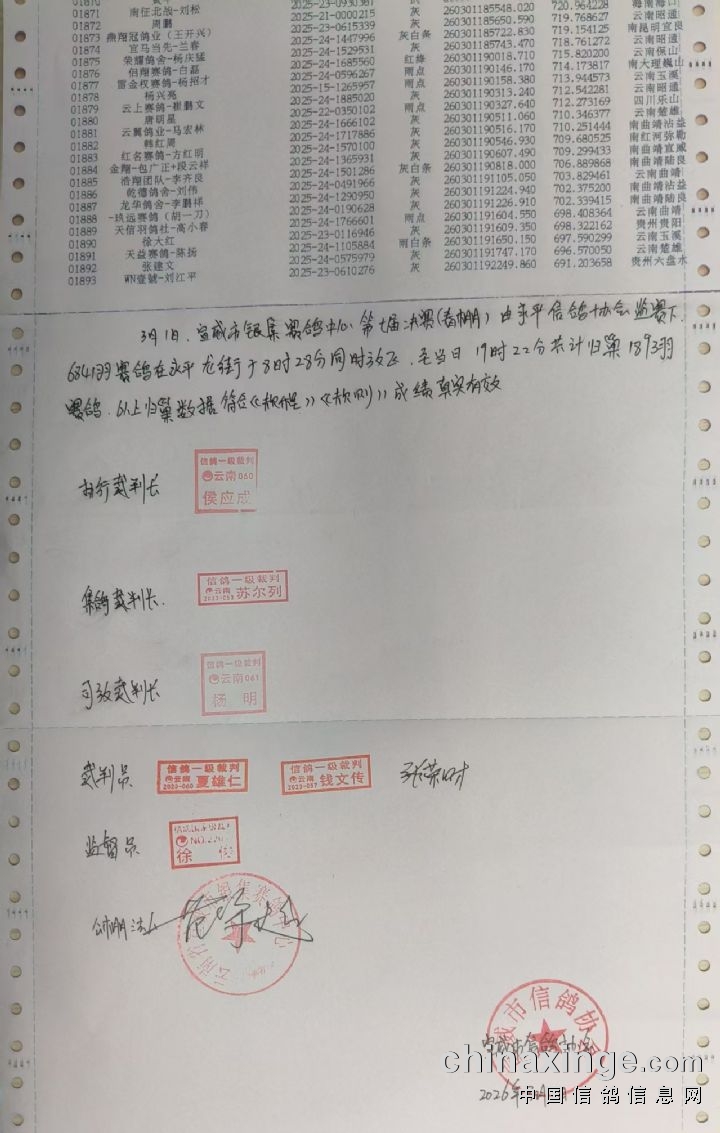 01871 南征北战-刘松 2025-21-0000215 灰 260301185548.020 720.964228 海南海口
01872 周鹏 2025-23-0615339 灰 260301185650.590 719.768627 云南昭通
01873 燕翔冠鸽业（王开兴） 2025-24-1447996 灰白条 260301185722.830 719.154125 南昆明宜良
01874 宜马当先-兰春 2025-24-1529531 灰 260301185743.470 718.761272 云南昭通
01875 荣耀鸽舍-杨庆猛 2025-24-1685560 红绛 260301190018.710 715.820200 云南保山
01876 侣翔赛鸽-白磊 2025-24-0596267 雨点 260301190146.170 714.173817 南大理巍山
01877 雷金权赛鸽-杨招才 2025-15-1265957 雨点 260301190158.380 713.944573 云南玉溪
01878 杨兴亮 2025-24-1885020 灰 260301190313.240 712.542281 四川乐山
01879 云上赛鸽-崔鹏文 2025-22-0350102 雨点 260301190327.640 712.273169 云南楚雄
01880 唐明星 2025-24-1666102 灰 260301190511.060 710.346377
01881 云翼鸽业-马宏林 2025-24-1717886 灰 260301190516.170 710.251444 南曲靖沾益
01882 韩红周 2025-24-1570100 灰 260301190546.930 709.680525 南红河弥勒
01883 红名赛鸽-方红明 2025-24-1365931 灰 260301190607.490 709.299433 南曲靖宣威
01884 金翔-包广正+段云祥 2025-24-1501286 灰白条 260301190818.000 706.889868 南曲靖陆良
01885 浩翔团队-李齐良 2025-24-0491966 灰 260301191105.050 703.829461
01886 乾德鸽舍-刘伟 2025-24-1290950 灰 260301191224.940 702.375200 南曲靖沾益
01887 龙华鸽舍-李鹏祥 2025-24-0190628 灰 260301191226.910 702.339415 南曲靖陆良
01888 -玖远赛鸽（胡一刀） 2025-24-1766601 雨点 260301191604.550 698.408364 云南曲靖
01889 天信羽鸽社-高小春 2025-23-0116946 灰 260301191609.350 698.322162 贵州贵阳
01890 徐大红 2025-24-1105884 雨白条 260301191650.150 697.590299 云南玉溪
01891 天益赛鸽-陈扬 2025-24-0575979 灰 260301191747.170 696.570050 云南楚雄
01892 张建文 2025-23-0610276 灰 260301192249.860 691.203658 贵州六盘水
01893 WN壹號-刘江平
3月1日，宣威市银集赛鸽中心第七届决赛(春棚)由永平信鸽协会监赛下，
6841羽赛鸽在永平龙街于8时28分同时放飞，至当日19时22分共计归巢1893羽
赛鸽，以上归巢数据符合《规程》《规则》成绩真实有效
执行裁判长
信鸽一级裁判
云南060
侯应成
集鸽裁判长
信鸽一级裁判
云南 苏尔列
司放裁判长
信鸽一级裁判
云南061
杨明
裁判员
信鸽一级裁判
云南 2023-060 夏雄仁
信鸽一级裁判
云南 2023-057 钱文传
监督员
徐俊
公棚法人
威市信鸽协
宣威市信鸽协会
2026年
chinaxinge.com
中国信鸽信息网